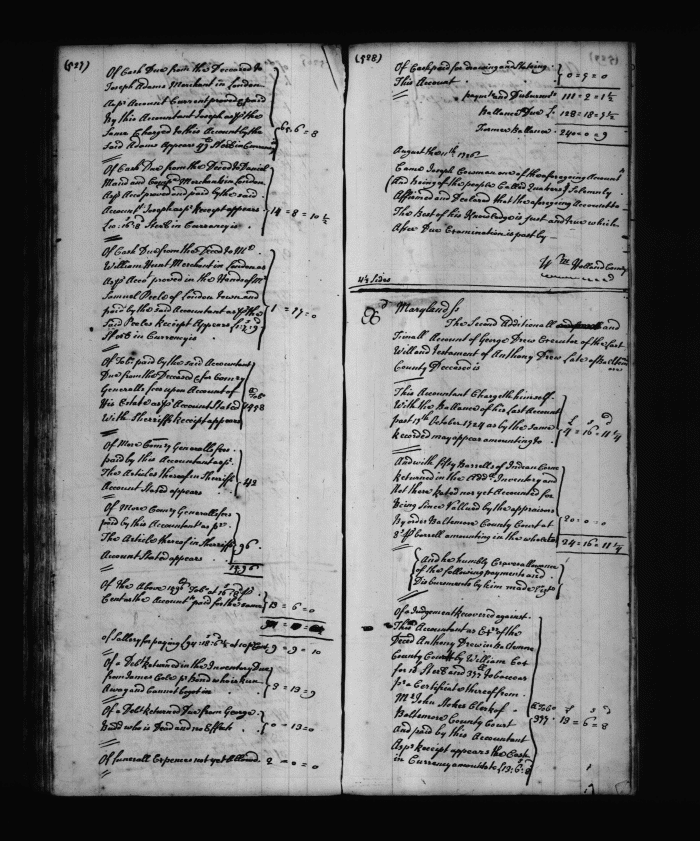 (527)
Of Cash Due from the Deceased to
Joseph Adams Merchant in London
As pr Account Currant proved & paid
By this Accountant Joseph as pr the
Same Charged to this Account by the
Said Adams Appears Sterl in Currency
65 = 6 = 8
Of Cash Due from the Deced to Daniel
Maud and Merchants in London
As pr Acct proved and paid by the said
Accountt Joseph as pr Receipt appears
Sterl in Currency is
14 = 8 = 10 ½
Of Cash Due from the Deced to Mr
William Hunt Merchant in London as
As pr Acct proved in the Hands of Mr
Samuel Peele of London Town and
paid by the said Accountant as pr the
Said Peeles Receipt Appears
Sterl in Currency is
1 = 17 = 0
Of Tobo paid by the said Accountant
Due from the Deceased for Comry
Generalls fees upon Account of
His Estate as pr Account Stated
With Sherriffs Receipt appears
Of More Comry Generalls fees
paid by this Accountant as pr
The Articles thereof in Sherriffs
Account Stated appears
42
Of More Comry Generalls fees
paid by this Accountant as pr
The Article thereof in Sherriffs
Account Stated appears
96
Of the Above Tobo at 16/8 pr
Cent as the Accountt paid for the same
13 = 6 = 0
Of Sallery for paying at 10 pr Ct
9 = 9 = 10
Of a Debt Returned in the Inventory Due
from James Cole pr Bond who is Run
Away and Cannot be got in
2 = 13 = 9
Of a Debt Returned Due from George
Budd who is Dead and no Effects
0 = 13 = 0
Of funerall Expences not yet Allowed
2 = 0 = 0
(528)
Of Cash paid for drawing and Stateing
This Account
0 = 9 = 0
paymts and Disbursmts 111 = 2 = 1 ½
Ballance Due £ 128 = 18 = 7 ½
Former Ballance 240 = 0 = 9
August the 11th 1726
Came Joseph Cowman one of the aforegoing Accountts
(And being of the people Called Quakers) Solemnly
Affirmed and Declared that the aforegoing Account is
The Best of his Knowledge is just and true which
After Due Examination is past by
Wm Holland Comry
4½ Sides
Exd Maryland ss
The Second Additionall and
Finall Account of George Drew Executor of the Last
Will and Testament of Anthony Drew Late of Baltimore
County Deceased is
This Accountant Chargeth himself
With the Ballance of his Last Account
past 17th October 1724 as by the Same
Recorded may appear amounting to
£ s d
4 = 16 = 11 ¼
And with fifty Barrells of Indean Corne
Returned in the Addl Inventory and
Not there Rated nor yet Accounted for
Being Since Vallued by the appraisors
By order Baltemore County Court at
8s pr barrell amounting in the whole to
20 = 0 = 0
24 = 16 = 11 ¼
And he humbly Craves allowance
of the following payments and
Disbursments by him made Vizt
Of a Judgement Recovered against
This Accountant as Exr of the
Deced Anthony Drew in Baltemore
County Court by William Cox
for Sterl and 377 Tobaccoe
pr a Certificate thereof from
Mr John Stokes Clerk of
Baltemore County Court
And paid by this Accountant
As pr Receipt appears the Cash
in Currency amounts to £13:6:8
Tobo £ s d
377 13 = 6 = 8